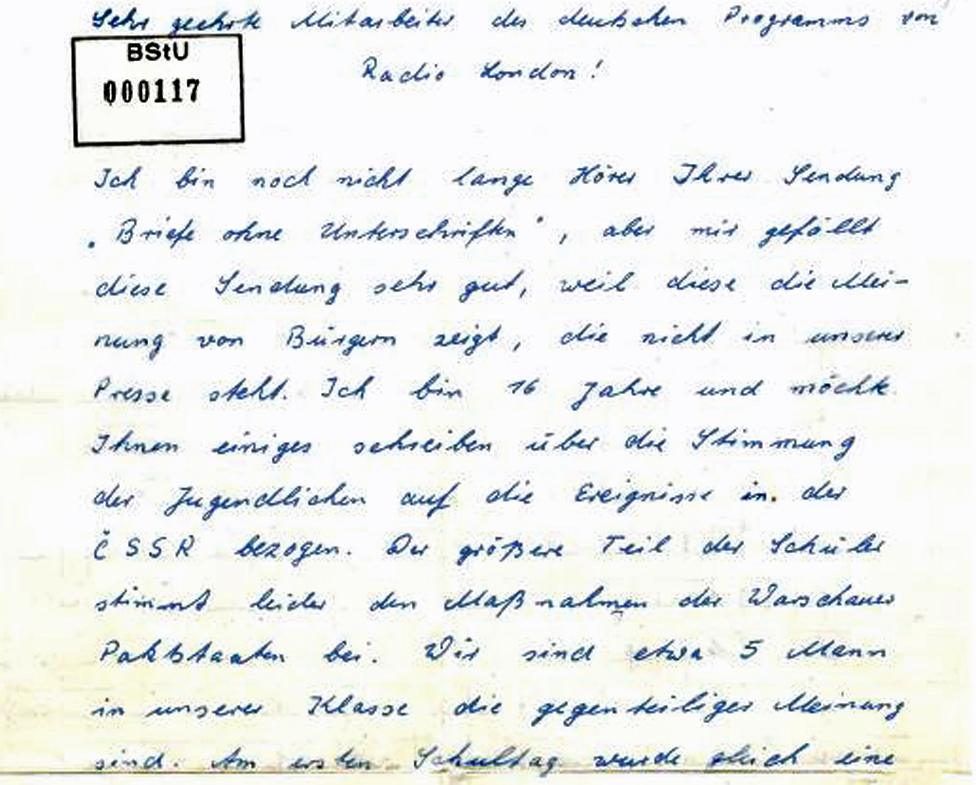 Sehr geehrte Mitarbeiter des deutschen Programms von
BStU
000117
Radio London!
Ich bin noch nicht lange Hörer Ihrer Sendung
„Briefe ohne Unterschriften", aber mir gefällt
diese Sendung sehr gut, weil diese die Mei-
nung von Bürgern zeigt, die nicht in unserer
Presse steht. Ich bin 16 Jahre und möchte
Ihnen einiges schreiben über die Stimmung
der Jugendlichen auf die Ereignisse in der
ČSSR bezogen. Der größere Teil der Schüler
stimmt leider den Maßnahmen der Warschauer
Paktstaaten bei. Wir sind etwa 5 Mann
in unserer Klasse die gegenteiliger Meinung
sind. Am ersten Schultag wurde gleich eine